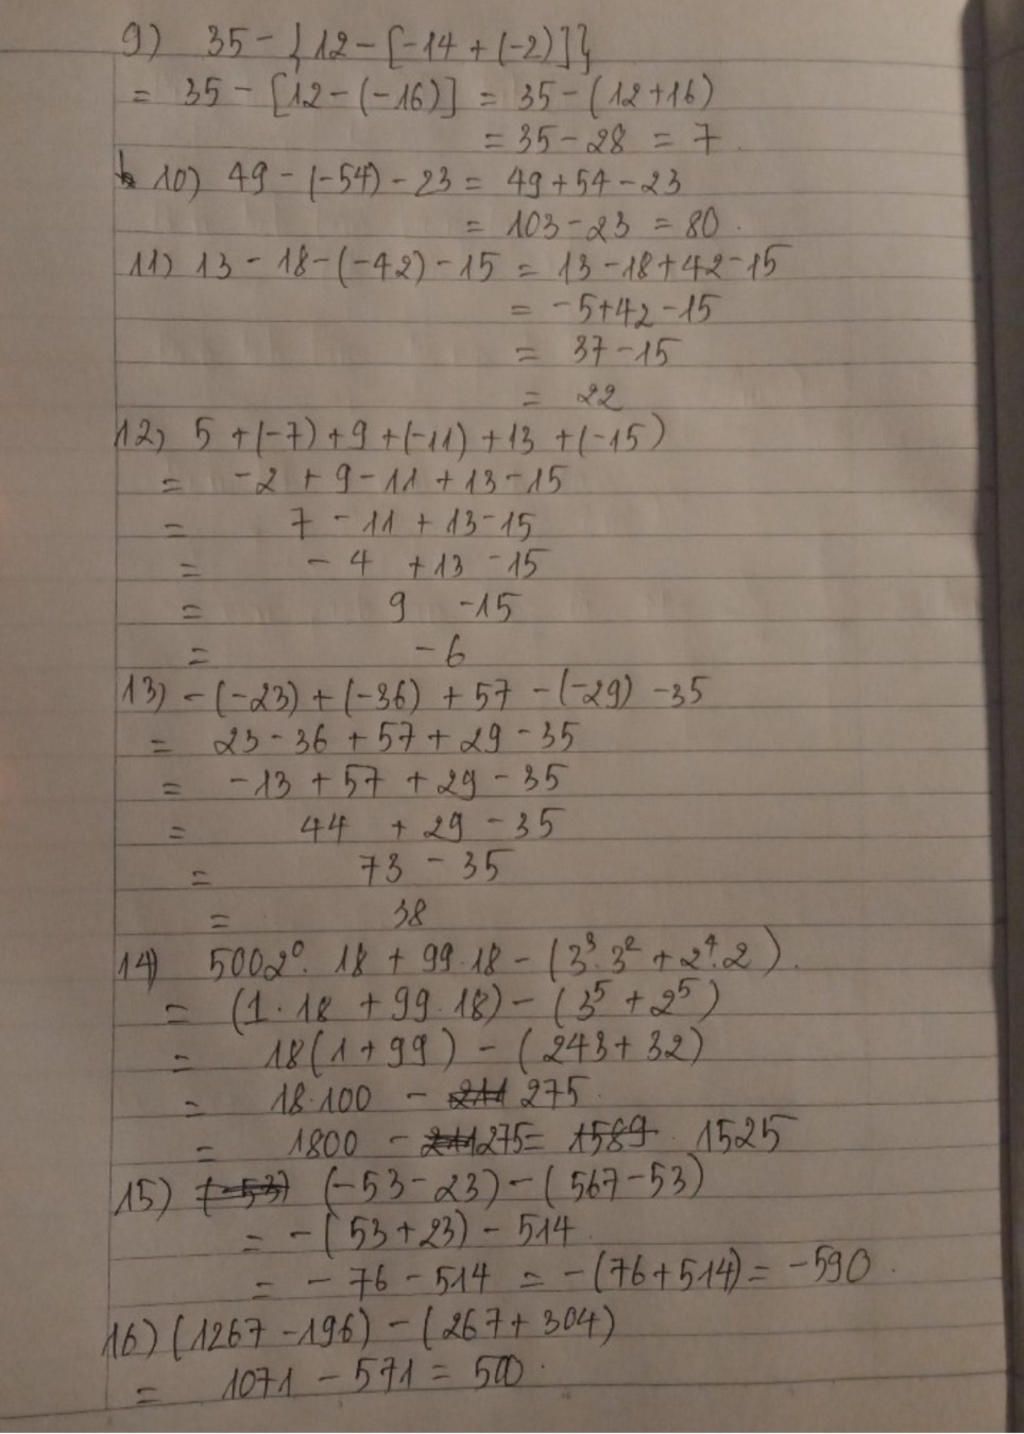 9) 35 - {12 - [-14 + (-2)]}
= 35 - [12 - (-16)] = 35 - (12 + 16)
= 35 - 28 = 7.
10) 49 - (-54) - 23 = 49 + 54 - 23
= 103 - 23 = 80.
11) 13 - 18 - (-42) - 15 = 13 - 18 + 42 - 15
= -5 + 42 - 15
= 37 - 15
= 22
12) 5 + (-7) + 9 + (-11) + 13 + (-15)
= -2 + 9 - 11 + 13 - 15
= 7 - 11 + 13 - 15
= -4 + 13 - 15
= 9 - 15
= -6
13) - (-23) + (-36) + 57 - (-29) - 35
= 23 - 36 + 57 + 29 - 35
= -13 + 57 + 29 - 35
= 44 + 29 - 35
= 73 - 35
= 38
14) 5002⁰. 18 + 99.18 - (3³. 3² + 2⁴. 2).
= (1. 18 + 99. 18) - (3⁵ + 2⁵)
= 18(1 + 99) - (243 + 32)
= 18.100 - 211 275.
= 1800 - 211 275 = 1589 1525
15) (-53) (-53 - 23) - (567 - 53)
= - (53 + 23) - 514
= - 76 - 514 = - (76 + 514) = -590.
16) (1267 - 196) - (267 + 304)
= 1071 - 571 = 500.